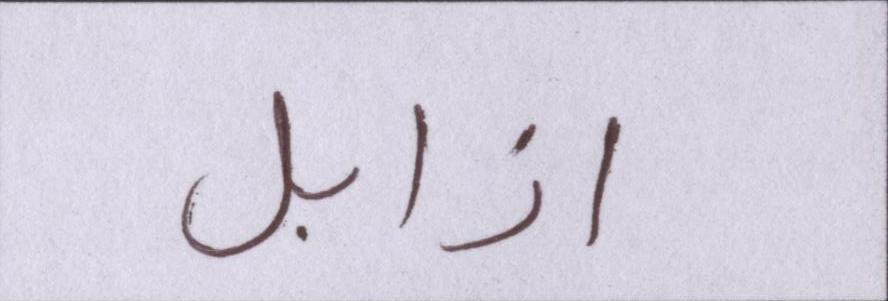 ازابل